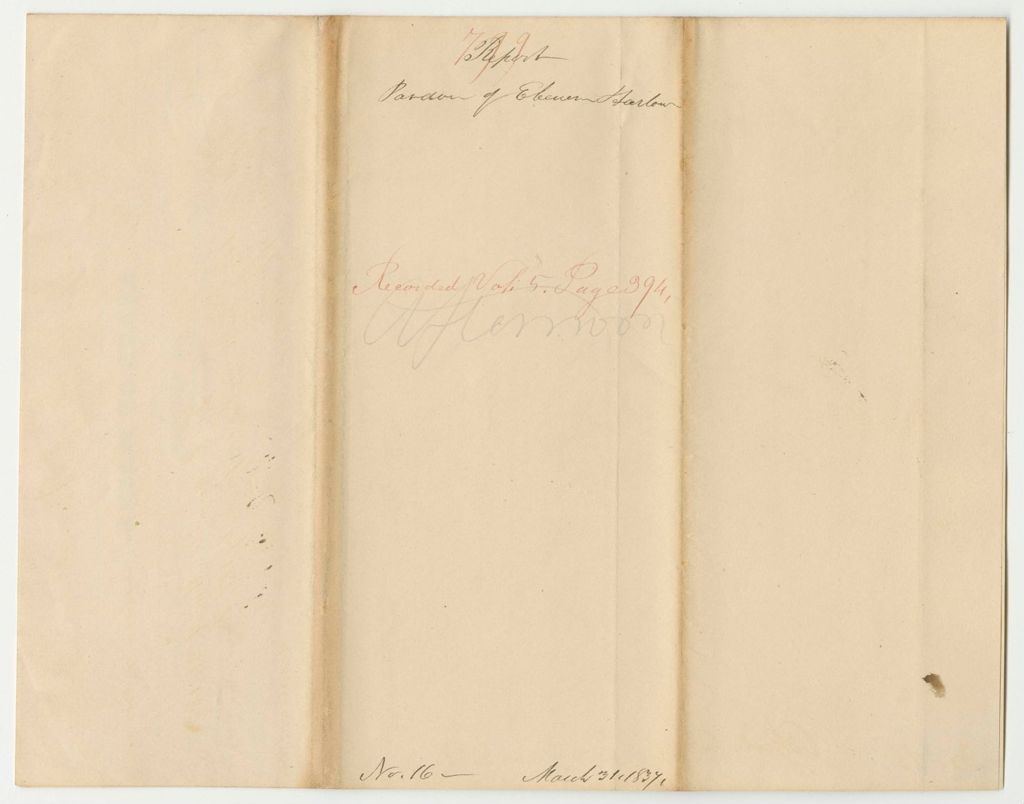 Report
Pardon of Ebenezer Harlow
Recorded Vol: 5. Page 394,
No. 16 —
March 31, 1837,